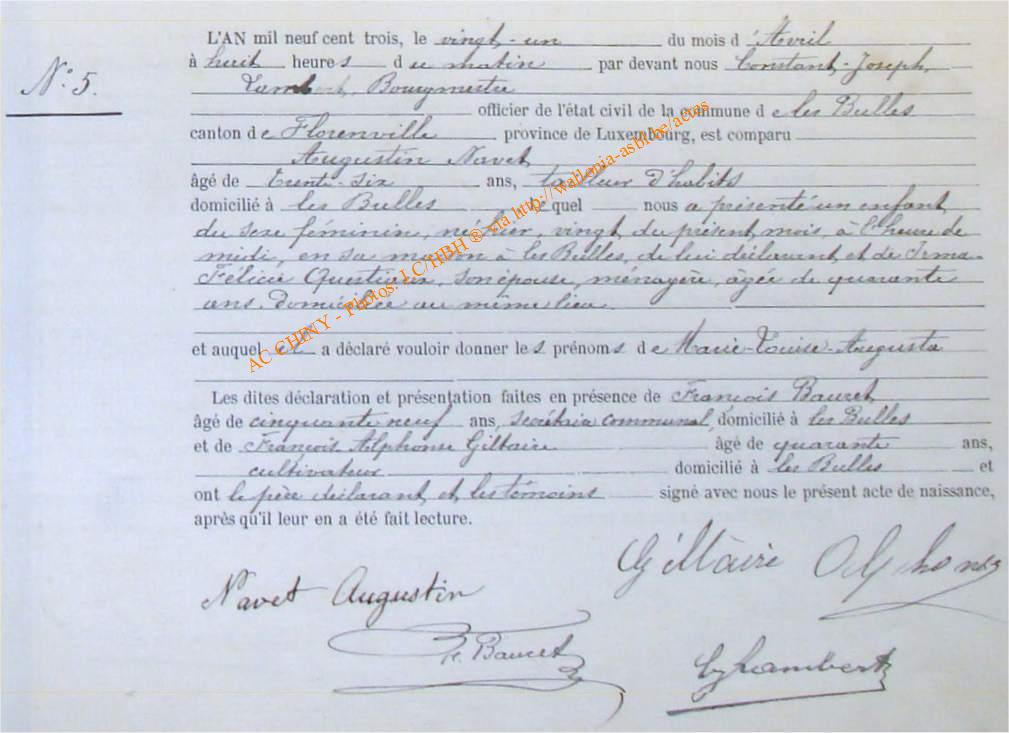 L'AN mil neuf cent trois, le vingt-un du mois d'Avril
N° 5.
à huit heures du matin par devant nous Constant-Joseph
Lambert, Bourgmestre
officier de l'état civil de la commune de les Bulles
canton de Florenville province de Luxembourg, est comparu
Augustin Navet
âgé de trente-six ans, tailleur d'habits
domicilié à les Bulles lequel nous a présenté un enfant
du sexe féminin, né hier, vingt du présent mois, à l'heure de
midi, en sa maison à les Bulles, de lui déclarant, et de Irma-
Félicie son épouse, ménagère, âgée de quarante
ans, domiciliée au même lieu.
et auquel il a déclaré vouloir donner les prénoms de Marie-Louise-Augusta
Les dites déclaration et présentation faites en présence de François Bauret
âgé de cinquante neuf ans, secrétaire communal, domicilié à les Bulles
et de François Alphonse Giltaire âgé de quarante ans,
cultivateur domicilié à les Bulles et
ont le père déclarant et les témoins signé avec nous le présent acte de naissance,
après qu'il leur en a été fait lecture.
Giltaire Alphonse
Navet Augustin
Fr. Bauret
Cj Lambert
AC CHINY - Photos: LC/HBH ® via http://wallonia-asbl.be/actes